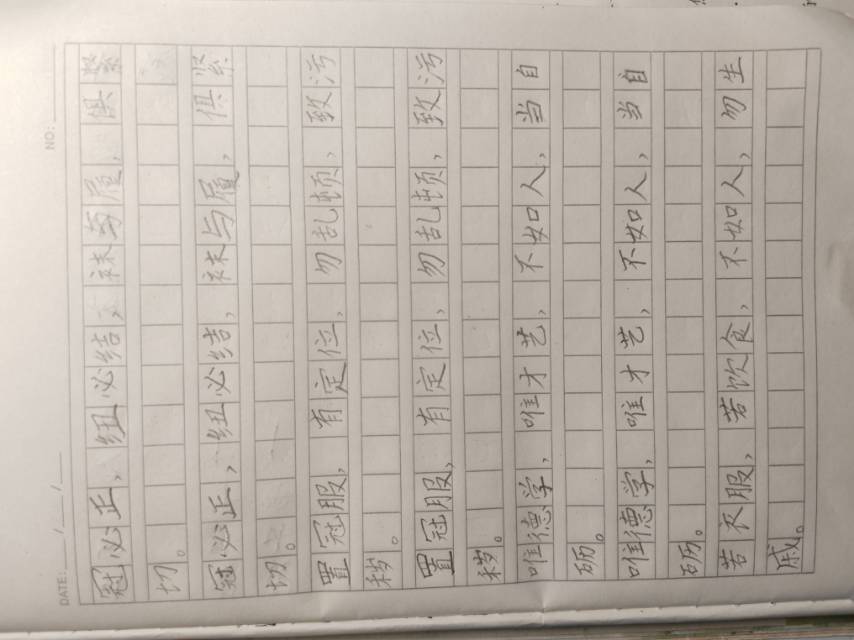 NO:
DATE: / /
冠必正，纽必结，袜与履，俱紧
切。
冠必正，纽必结，袜与履，俱紧
切。
置冠服，有定位，勿乱顿，致污
秽。
置冠服，有定位，勿乱顿，致污
秽。
唯德学，唯才艺，不如人，当自
砺。
唯德学，唯才艺，不如人，当自
砺。
若衣服，若饮食，不如人，勿生
戚。